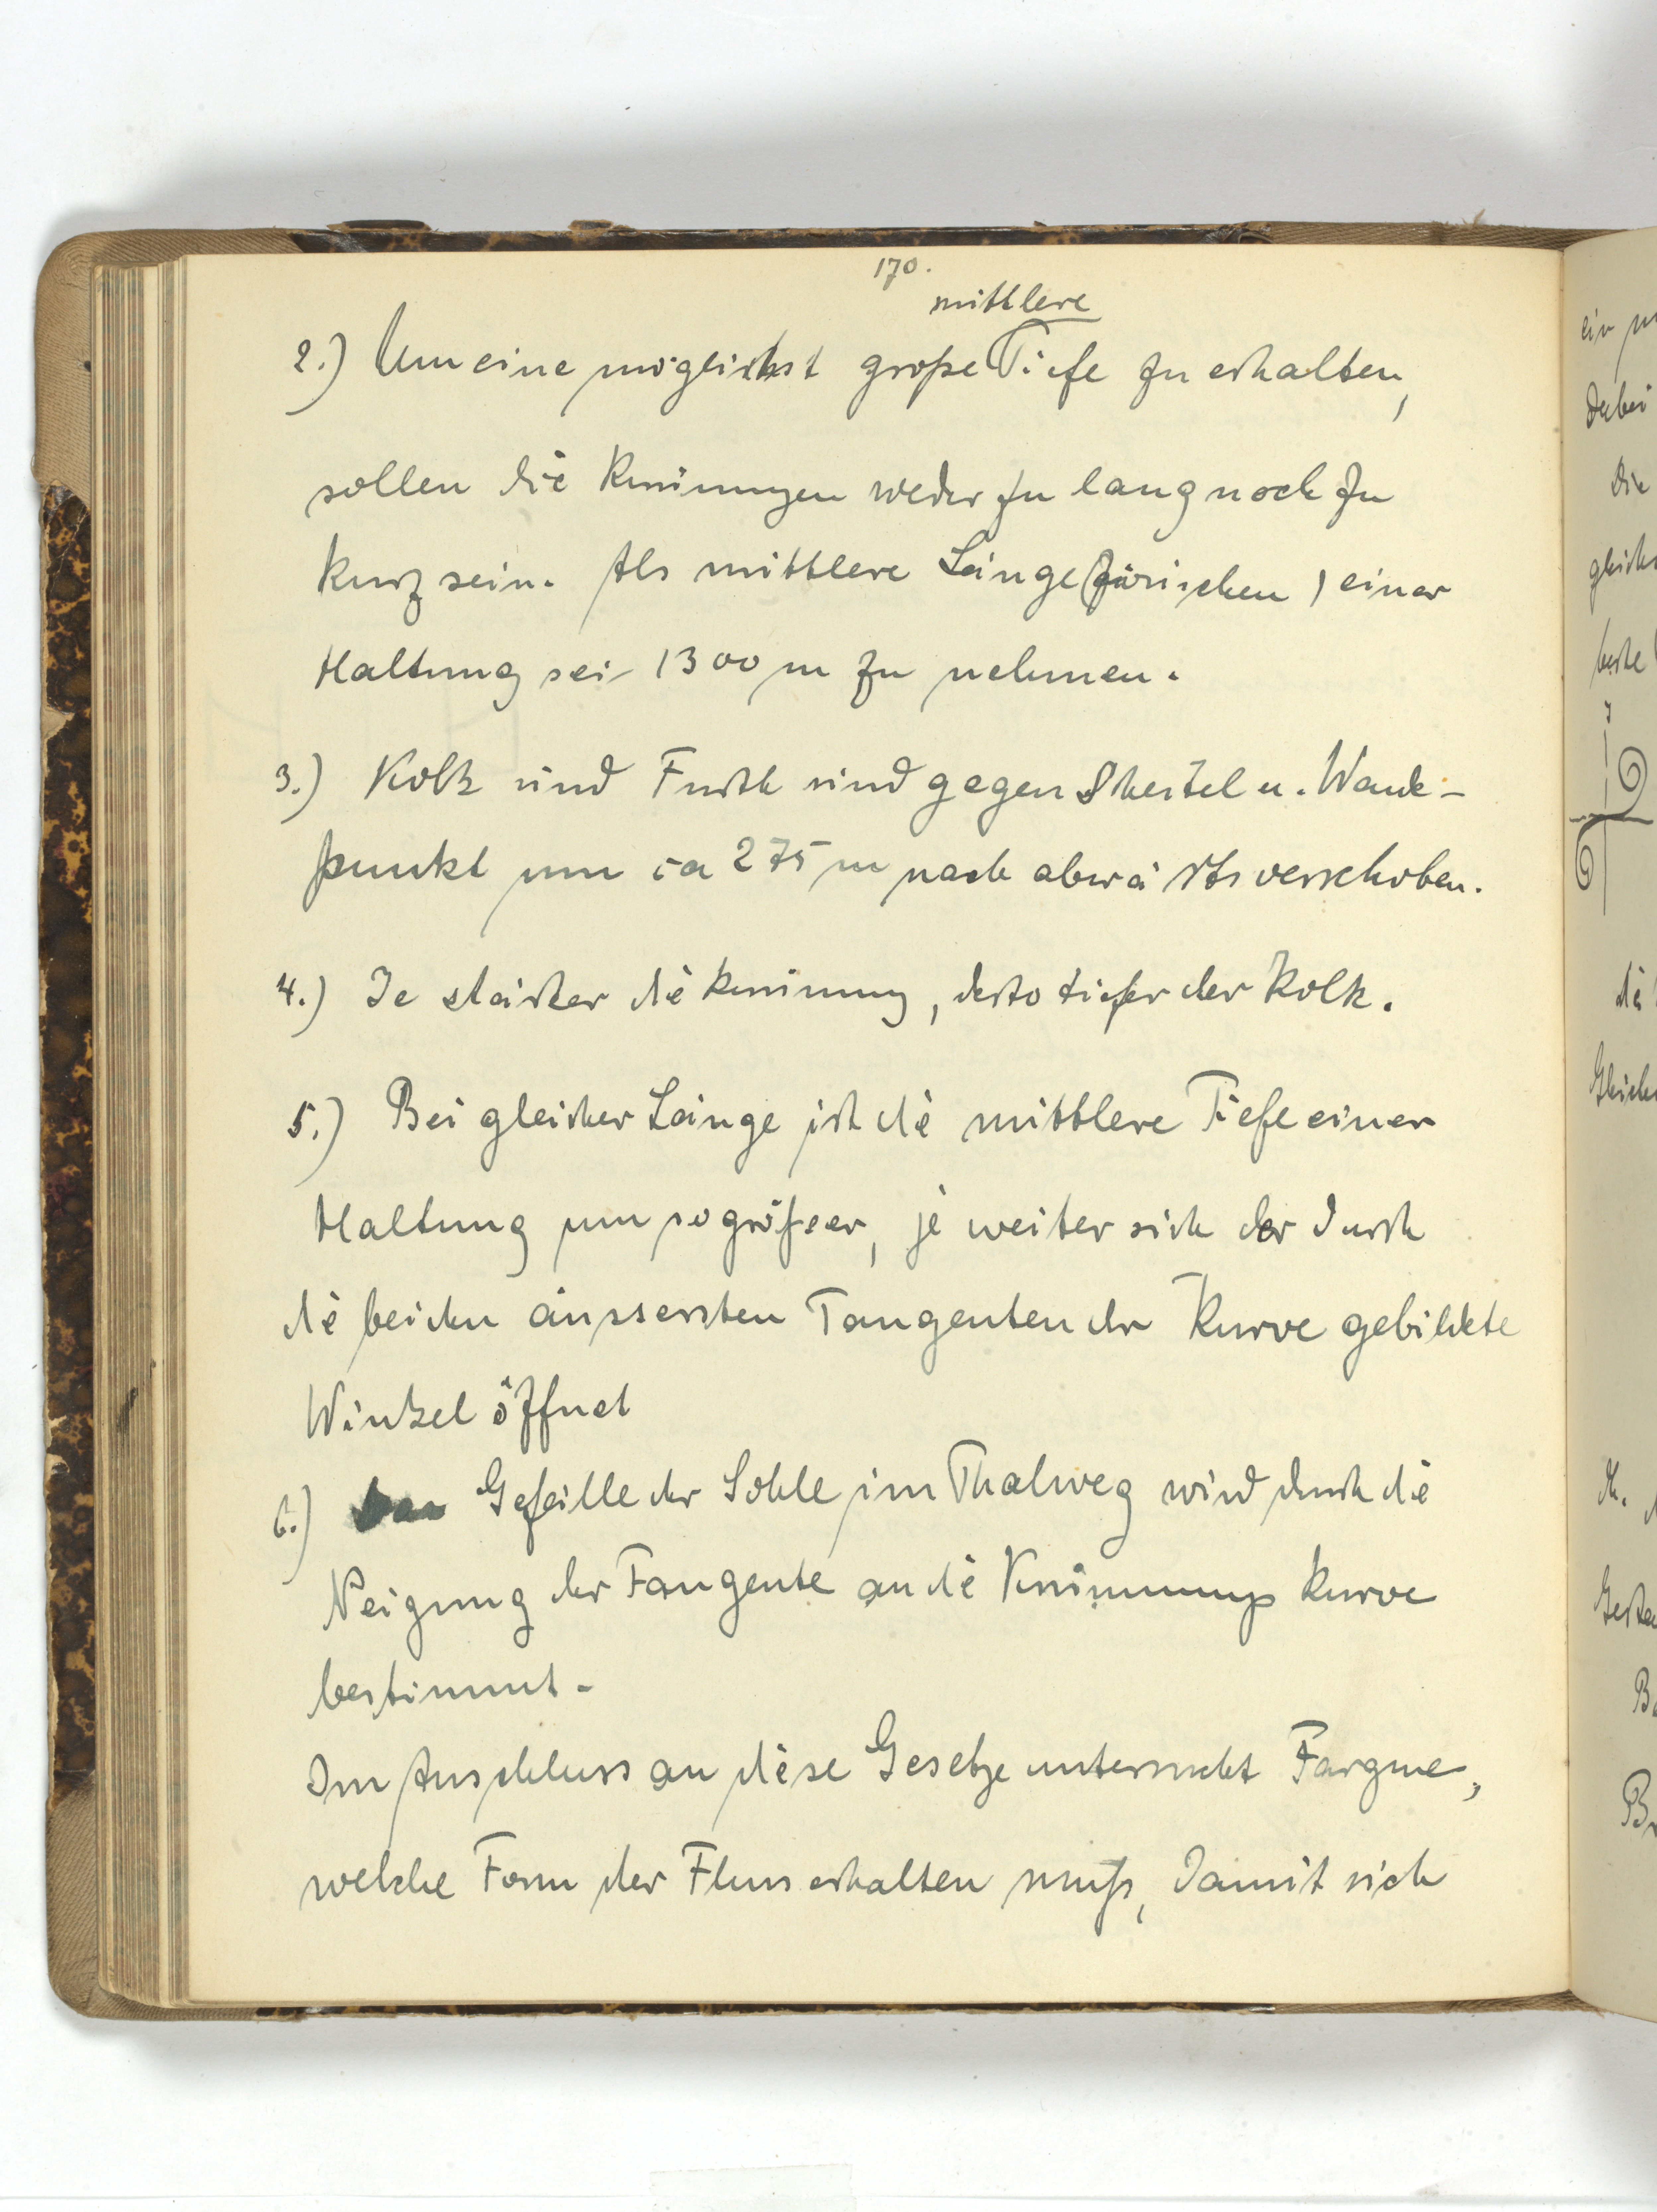 170.
mittlere
2.) Um eine möglichst große Tiefe zu erhalten,
sollen die Krümmungen weder zu lang noch zu
kurz sein. Als mittlere Länge (zwischen) einer
Haltung sei 1300 m zu nehmen.
3.) Kolk und Furth sind gegen Scheitel u. Wende-
punkt um ca 275 m nach abwärts verschoben.
4.) Je stärker die Krümmung, desto tiefer der Kolk.
5.) Bei gleicher Länge ist die mittlere Tiefe einer
Haltung um so größer, je weiter sich der durch
die beiden äussersten Tangenten der Kurve gebildete
Winkel öffnet
6.) Gefälle der Sohle im Thalweg wird durch die
Neigung der Tangente an die Krümmungskurve
bestimmt.
Im Anschluss an diese Gesetze untersucht Fargue,
welche Form der Fluss erhalten muß, damit sich